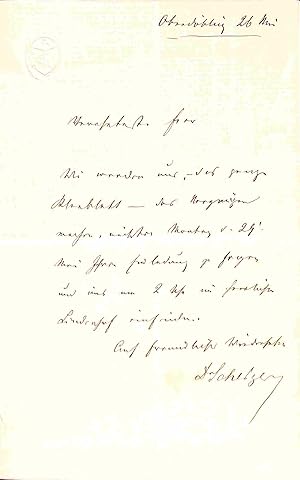 Oberdöbling 26 Mai
Verehrtest. Frau
Wir werden uns, – das ganze
Kleeblatt – das Vergnügen
machen, nächsten Montag d. 29t
Mai Ihrer Einladung zu folgen
und uns um 2 Uhr im herrlichen
Lindenhof einfinden.
Auf freundliches Wiedersehen
Dr Schelzer